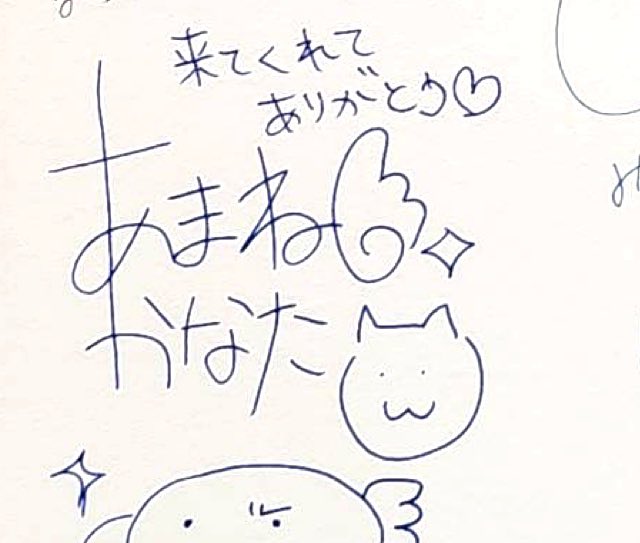 来てくれて
ありがとう♡
あまね
かなた